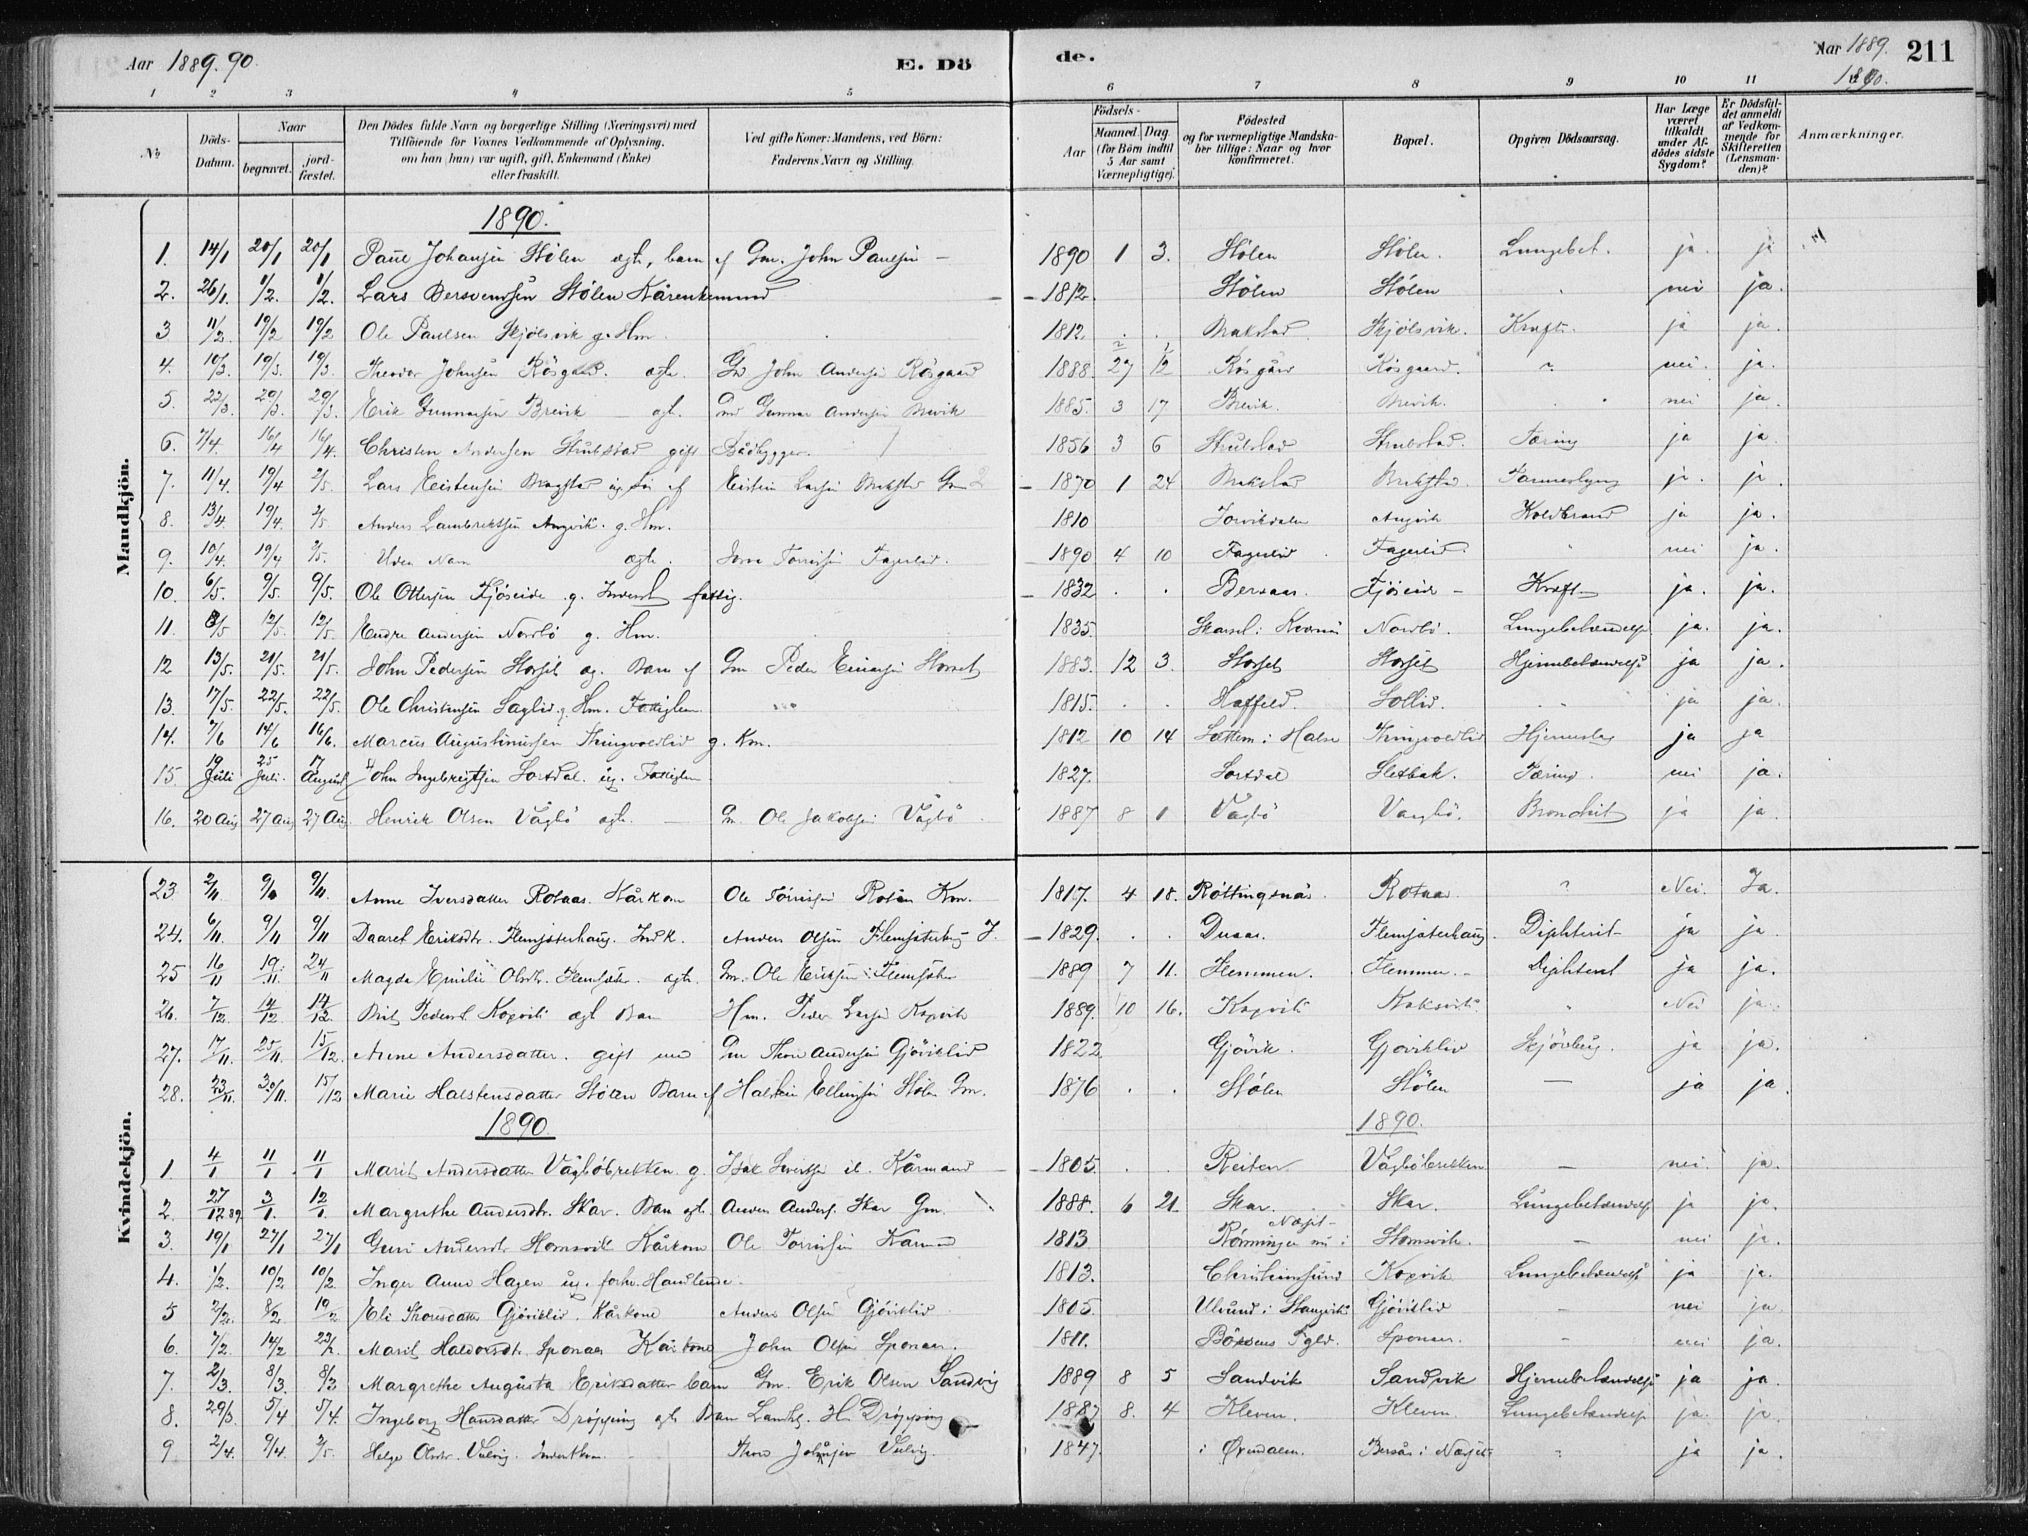 Aar 1889. 90. E. Dö de. Aar 1889. 1890. 211
1 2 3 4 5 6 7 8 9 10 11
No Döds-Datum. Naar begravet. jord-fæstet. Den Dödes fulde Navn og borgerlige Stilling (Næringsvei) med Tilföiende for Voxnes Vedkommende af Oplysning, om han (hun) var ugift, gift, Enkemand (Enke) eller fraskilt. Ved gifte Koner: Mandens, ved Börn: Faderens Navn og Stilling. Födsels- Aar Maaned. Dag. (for Börn indtil 5 Aar samt Værnepligtige). Födested og for værnepligtige Mandskaber tillige: Naar og hvor konfirmeret. Bopæl. Opgiven Dödsaarsag. Har Læge været tilkaldt under Afdödes sidste Sygdom? Er Dödsfaldet anmeldt af Vedkommende for Skifteretten (Lensmanden)? Anmærkninger.
Mandkjön.
1890.
1. 14/1 20/1 20/1 Paul Johansen Stölen ægte, barn af Gm. John Paulsen – 1890 1 3. Stölen Stölen. Lungebet. ja. ja
2. 26/1. 1/2. 1/2. Lars Stölen Kårenkemand – 1812. Stölen Stölen nei ja.
3 11/2. 19/2 19/2 Ole Paulsen Skjölsvik g. Hm. 1812. Bakstad Skjölsvik. Kræft. ja ja.
4. 10/3. 19/3. 19/3. Theodor Johnsen Rösgaard. ægte. John Andersen Rösgaard 1888. 27 12 Rösgård Rösgaard. nei. ja.
5. 22/3. 29/3. 29/3. Erik Gunnarsen Brevik – ægt. Gunnar Andersen Brevik 1885. 3 17 Brevik. Brevik. nei ja.
6. 7/4. 16/4 16/4. Christen Andersen Strubstad gift Bådbygger. 1856 3 6 Strubstad Strubstad. Tæring ja ja.
7. 11/4. 19/4 2/5. Lars Eistensen ug. Sön af Eistein Larsen Gm – 1870 1 24 Bakstad ja. ja.
8. 13/4. 19/4. 2/5. Anders Lambrektsen Angvik. g. Hm. 1810 Angvik Koldbrand ja ja.
9. 10/4. 19/4 2/5. Uden Navn ægte. Torrissen Fagerlid. 1890 4 10 Fagerlid Fagerlid. nei ja.
10. 6/5. 9/5. 9/5. Ole Ottersen Fjöseide g. Inderst fattig. – 1832 . . Bersaas. Fjöseide – Kræft – ja. ja.
11. 8/5 12/5. 12/5. Endre Andersen Nordbö g. Hm. 1835. Nordbö. Lungebetændelse ja. ja.
12 13/5. 21/5. 21/5. John Pedersen Storset æg. Barn af Gm Peder Einarsen Storset 1883. 12 3. Storset Storset Hjernebetændelse ja ja.
13. 17/5. 22/5. 22/5. Ole Christensen g. Hm. Fattiglem. 1815. . . Sollid. ja ja.
14. 7/6 14/6 16/6. Marcus Augustinussen Tingvoldlid g. Km. 1812 10 14 Sættem i Halse Tingvoldlid Hjerneslag ja ja
15. 19 Juli 25 Juli. 17 August John Ingebrigtsen Sortdal. ug. Fattiglem 1827. Sortdal Sletbak. Tæring. nei ja.
16. 20 Aug 27 Aug 27 Aug. Henrik Olsen Vågbö ægte. – Gm. Ole Jakobsen Vågbö 1887 8 1 Vågbö Vaagbö. Bronchit ja ja.
Kvindekjön.
23. 2/11 9/11 9/11 Anne Iversdatter Rotaas. Kårkone Ole Törrissen Rotås Km. 1817. 4 18. Röttingsnäs. Rotaas. ? Nei. Ja.
24. 6/11. 9/11 9/11 Daaret Eriksdtr. Flemsæterhaug. Indk. Anders Olsen Flemsæterhaug J. – 1829. . . Duaas. Flemsæterhaug. Diphterit – ja ja.
25 16/11 19/11. 24/11 Magda Emilie Olsdtr. Flemsæter. ægte. Gm. Ole Eriksen Flemsæter 1889 7 11. Flemmen. Flemmen. – Diphterit ja ja.
26. 7/12. 14/12 14/12. Brit Pedersd. Koxvik ægt Barn Hm. Peder Larsen Koxvik 1889. 10 16. Koxvik Koksvik. Nei ja.
27. 17/11. 25/11 15/12. Anne Andersdatter. gift med Gm Thore Andersen Gjöviklid 1822. Gjövik. Gjöviklid ja ja.
28. 23/11. 30/11. 15/12 Marie Halstensdatter Stölen Barn af Halsten Ellingsen Stölen Gm. 1876 . . Stölen Stölen – ja ja.
1890. 1890.
1. 4/1 11/1 11/1 Marit Andersdatter Vågböbrekken g. Isak Sivertsen Kårmand – 1805. . . Reiten Vågböbrekken – nei. ja.
2. 27/12 89. 3/1. 12/1 Margrethe Andersdtr. Skar. Barn ægt. Anders Anders. Skar Gm. 1888. 6 21 Skar. Skar. Lungebetændelse ja ja.
3. 19/1 27/1 27/1 Guri Andersdtr Hamsvik Kårkone Ole Torrissen Kårmand 1813 Rönningen i Næset – Hamsvik. – nei ja.
4. 1/2. 10/2 10/2. Inger Anne Hagen ug. forhv. Handlende. 1813. Christiansund Koxvik Lungebetændelse ja ja.
5 2/2. 8/2 10/2 Eli Thoresdatter Gjöviklid. Kårkone Anders Olsen Gjöviklid 1805. Ulvund i Stangvik Gjöviklid – nei ja.
6. 7/2. 14/2 23/2. Marit Haldorsdt. Sponaas Kårkone John Olsen Sponaas. 1811. Sponaas. – nei ja.
7. 2/3. 8/3. 8/3 Margrethe Augusta Eriksdatter barn Gm. Erik Olsen Sandvig 1889 8 5 Sandvik Sandvik Hjernebetændelse ja ja.
8. 29/3. 5/4 5/4. Ingeborg Hansdatter Dröpping ægte Barn H. Dröpping 1887 8. 4 Kleven. Kleven Lungebetændelse ja. ja.
9 2/4. 9/4. 3/5. Helge Olsdtr. Vulvig. Inderstkone. – Thore Johnsen Vulvig. 1847. i Öxendalen. Bersås i Næsset – ja ja.